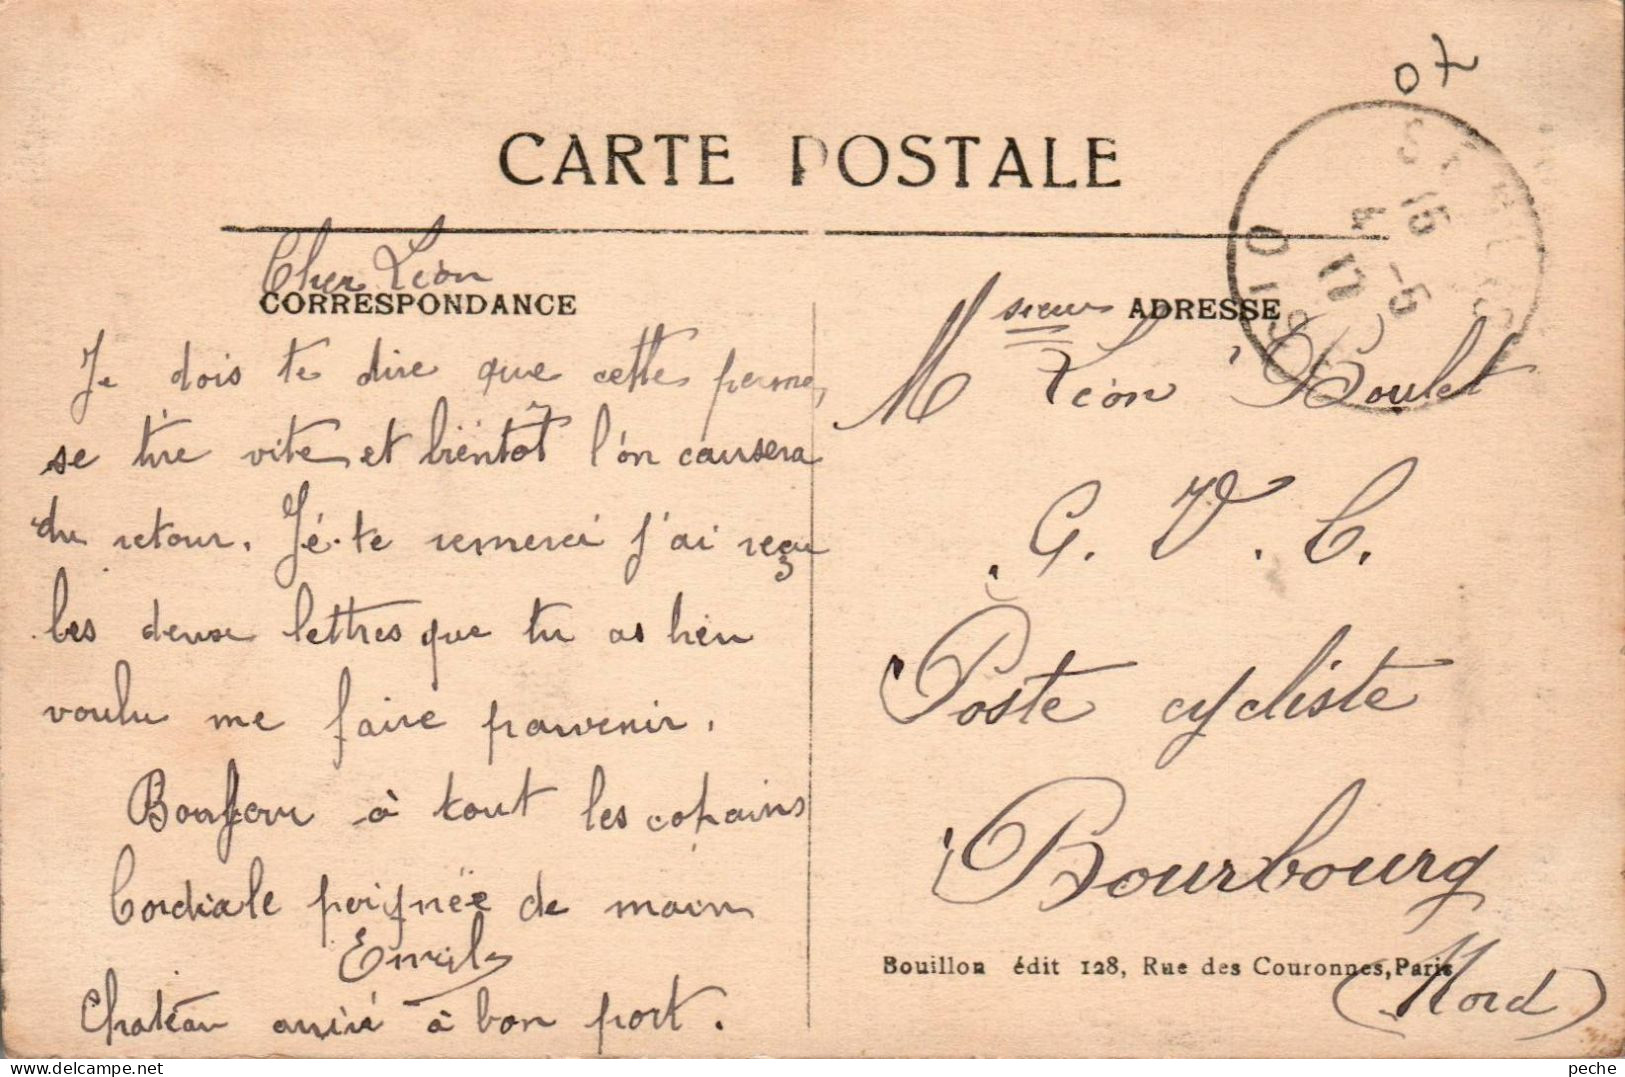 07
CARTE POSTALE
15
4 -5
17
OISE
Cher Léon
CORRESPONDANCE
Je dois te dire que cette perme,
se tire vite et bientôt l'on causera
du retour. Jé te remerci j'ai reçu
les deux lettres que tu as bien
voulu me faire parvenir.
Bonjour à tout les copains
Cordiale poignée de main
Emile
Chateau arrivé à bon port.
ADRESSE
Monsieur Léon Boulet
G. V. C.
Poste cycliste
Bourbourg
(Nord)
Bouillon édit 128, Rue des Couronnes, Paris
peche